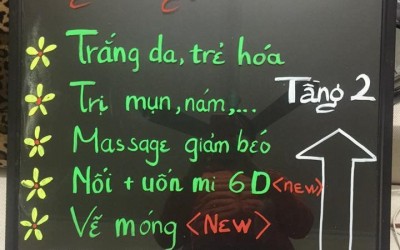 Trắng da, trẻ hóa
Trị mụn, nám,...
Tầng 2
Massage giảm béo
Nối + uốn mi 6D <new>
Vẽ móng <NEW>